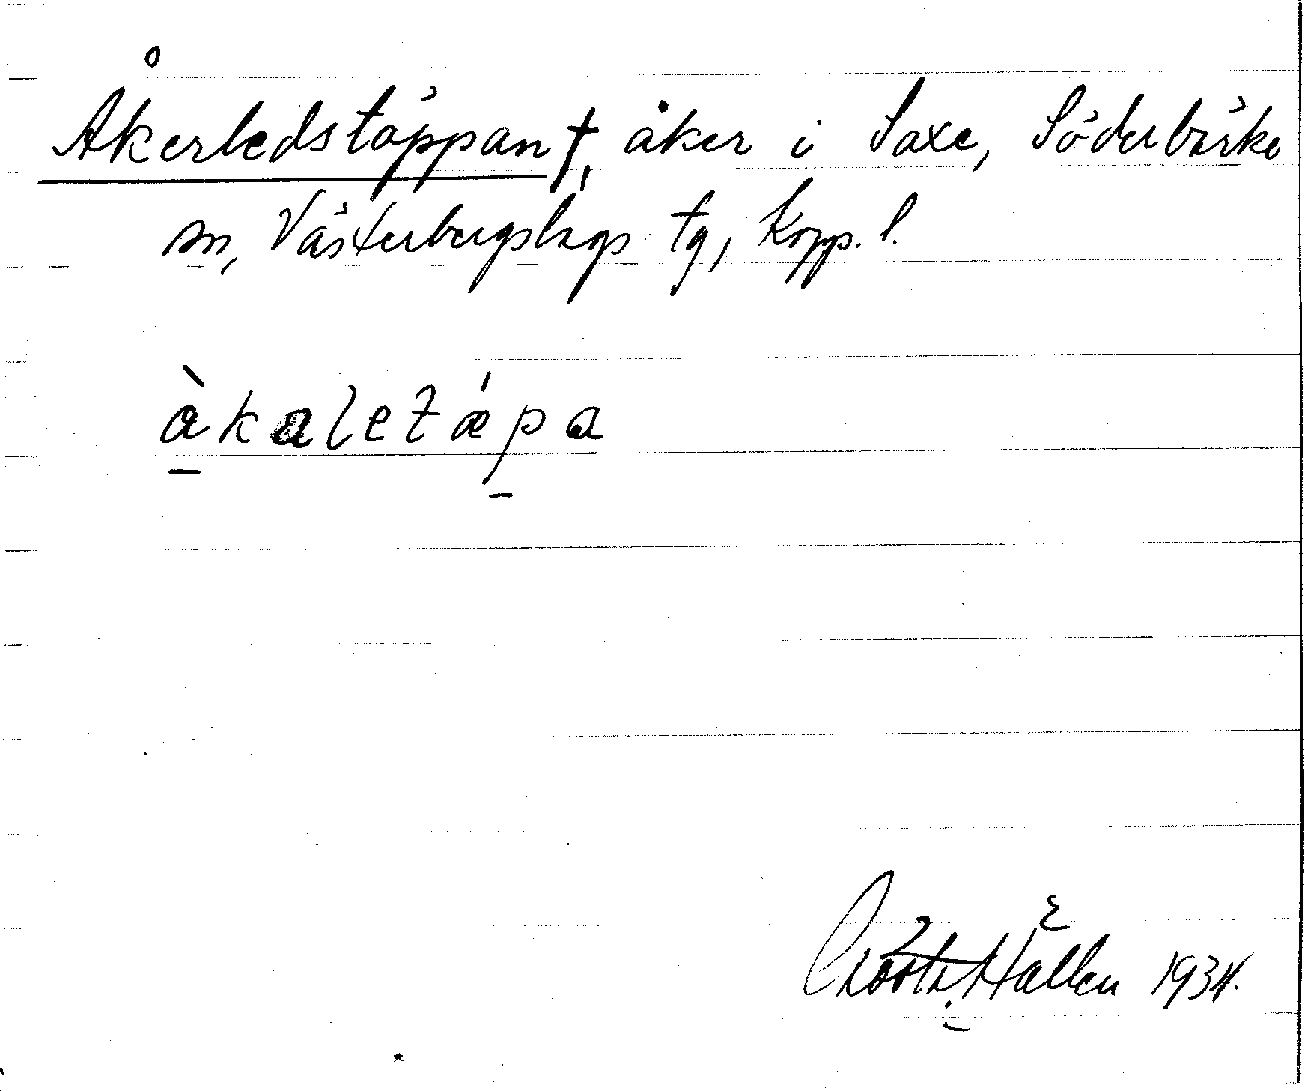 Åkerledstäppan †, åker i Saxe, Söderbärke
sn, Västerbergslags tg, Kopp. l.
àkaletǽpa
Hällen 1934.